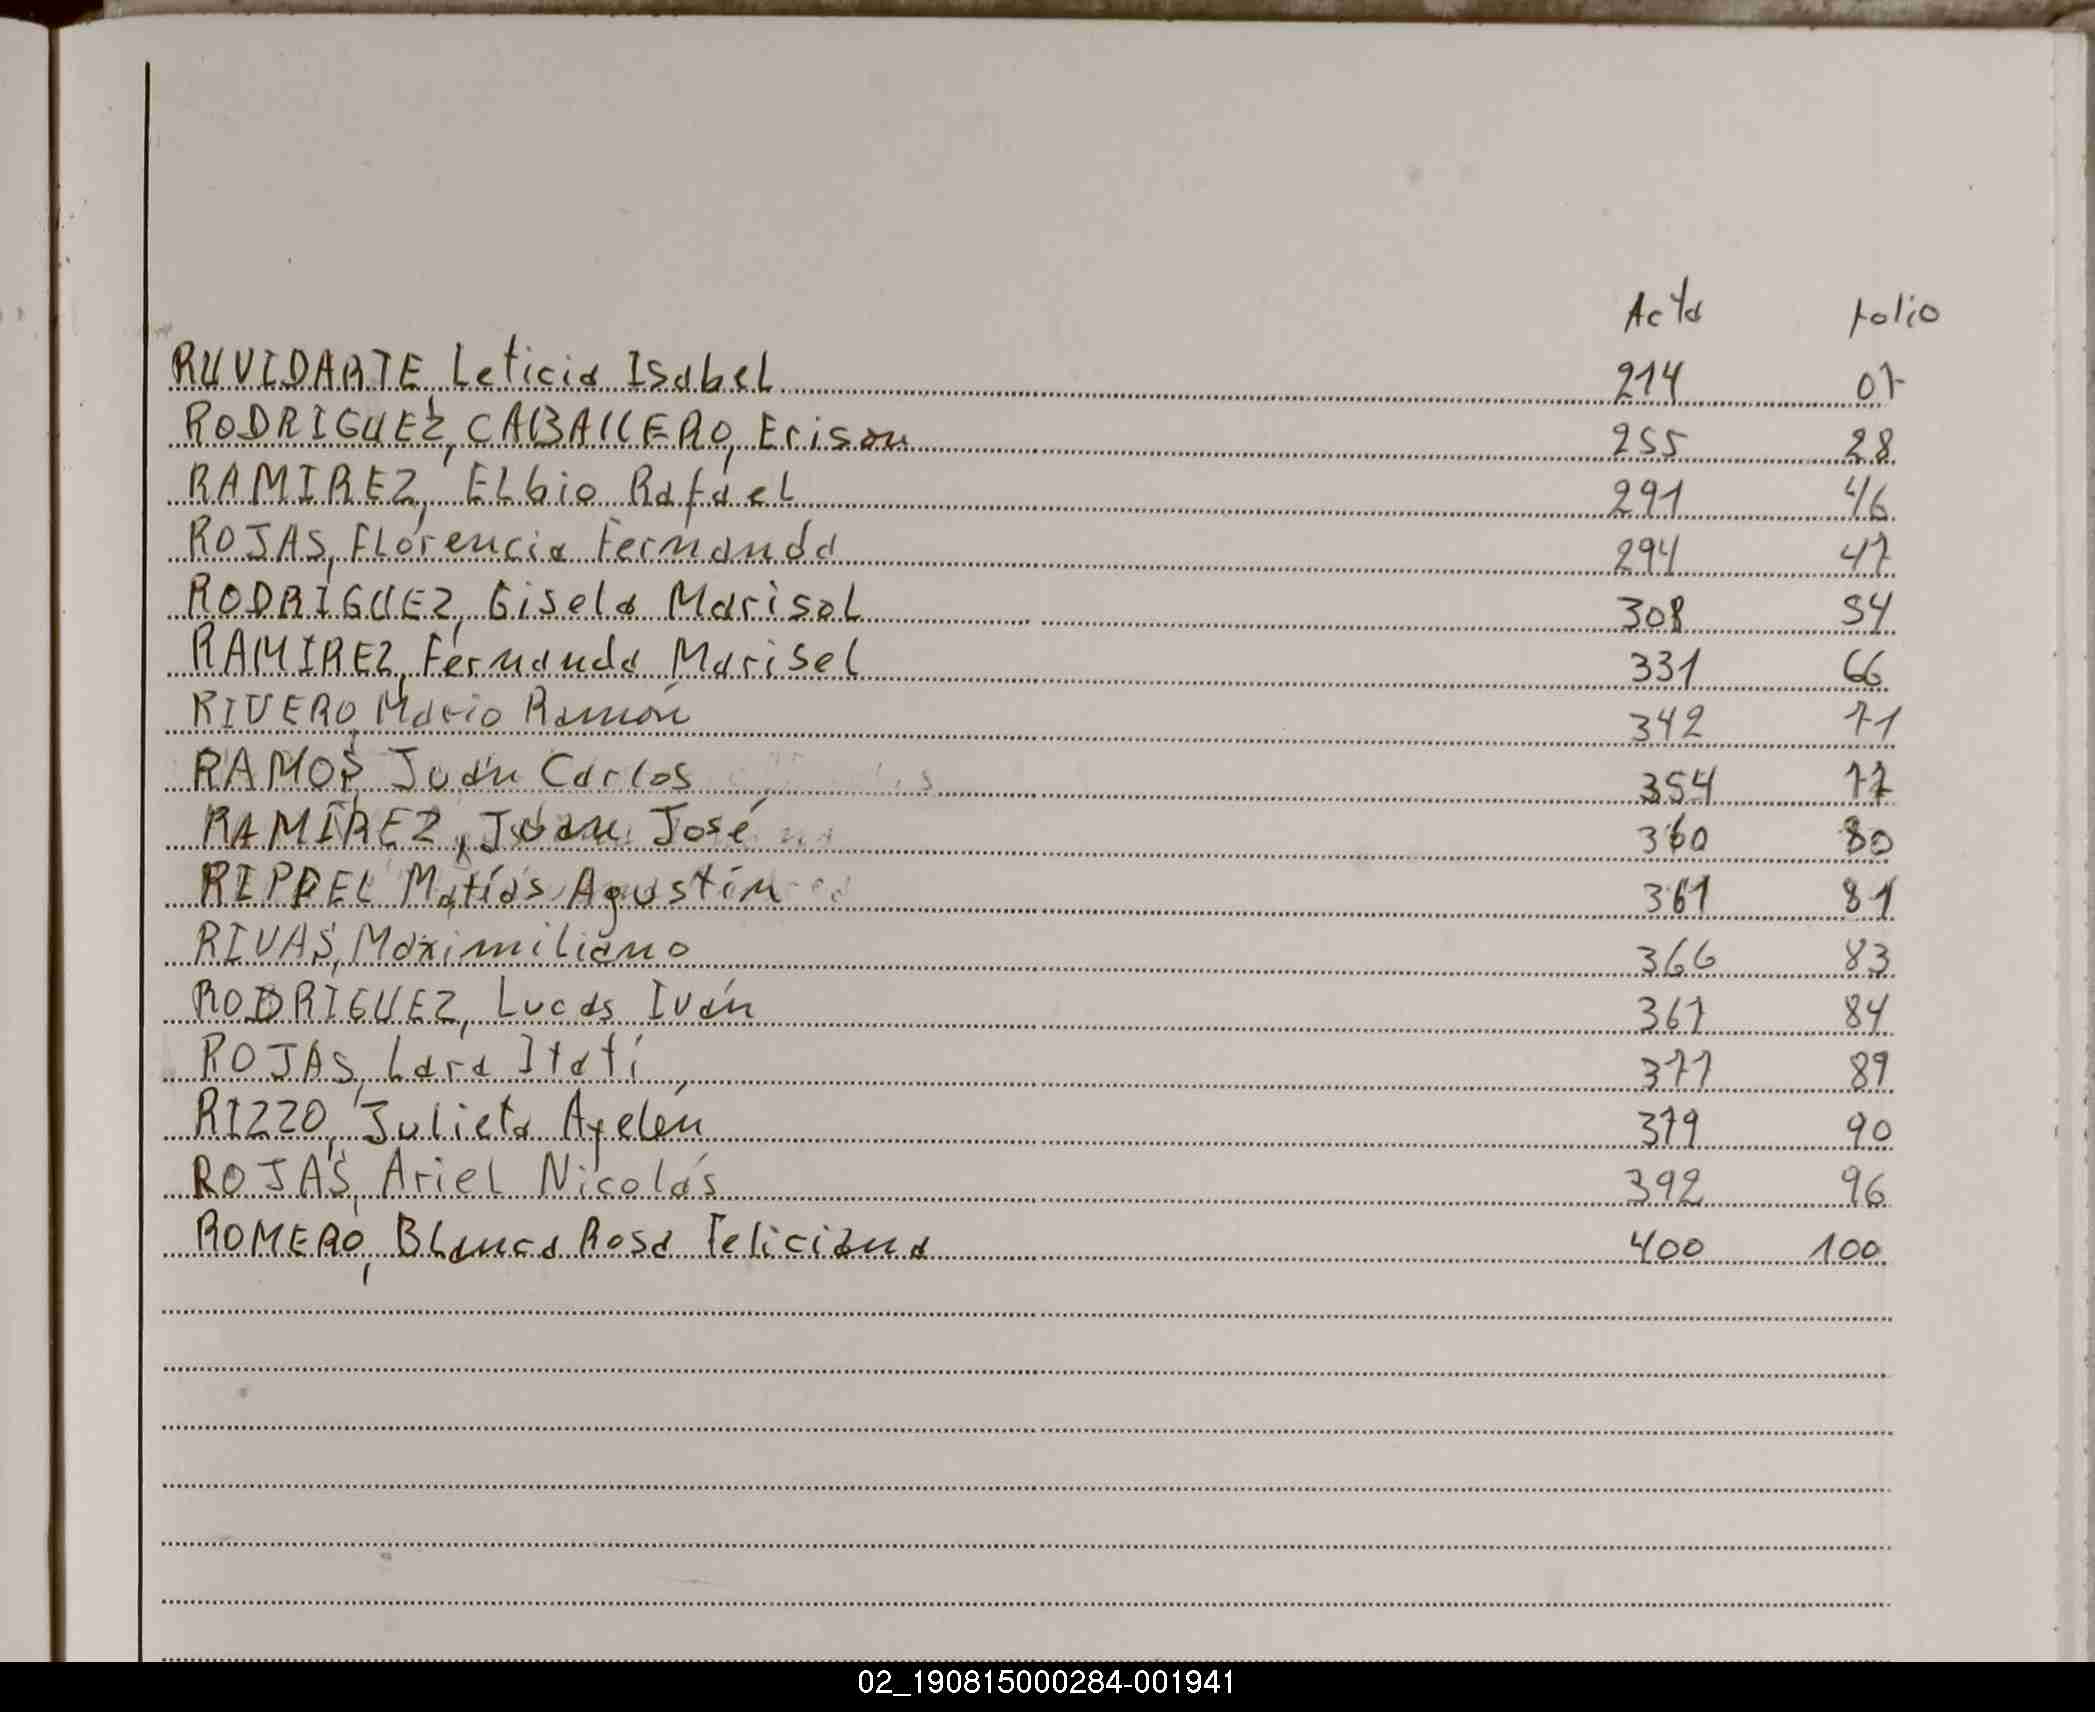 Acta folio
RUVIDARTE, Leticia Isabel 214 07
RODRIGUEZ, CABALLERO, Erison 255 28
RAMIREZ, Elbio Rafael 291 46
ROJAS, Florencia Fernanda 294 47
RODRIGUEZ, Gisela Marisol 308 54
RAMIREZ, Fernanda Marisel 331 66
RIVERO, Mario Ramón 342 71
RAMOS, Juan Carlos 354 77
RAMÍREZ, Juan José 360 80
RIPPEL Matías Agustín 361 81
RIVAS, Maximiliano 366 83
RODRIGUEZ, Lucas Iván 367 84
ROJAS, Lara Itatí 377 89
RIZZO, Julieta Ayelén 379 90
ROJAS, Ariel Nicolás 392 96
ROMERO, Blanca Rosa Feliciana 400 100
02_190815000284-001941